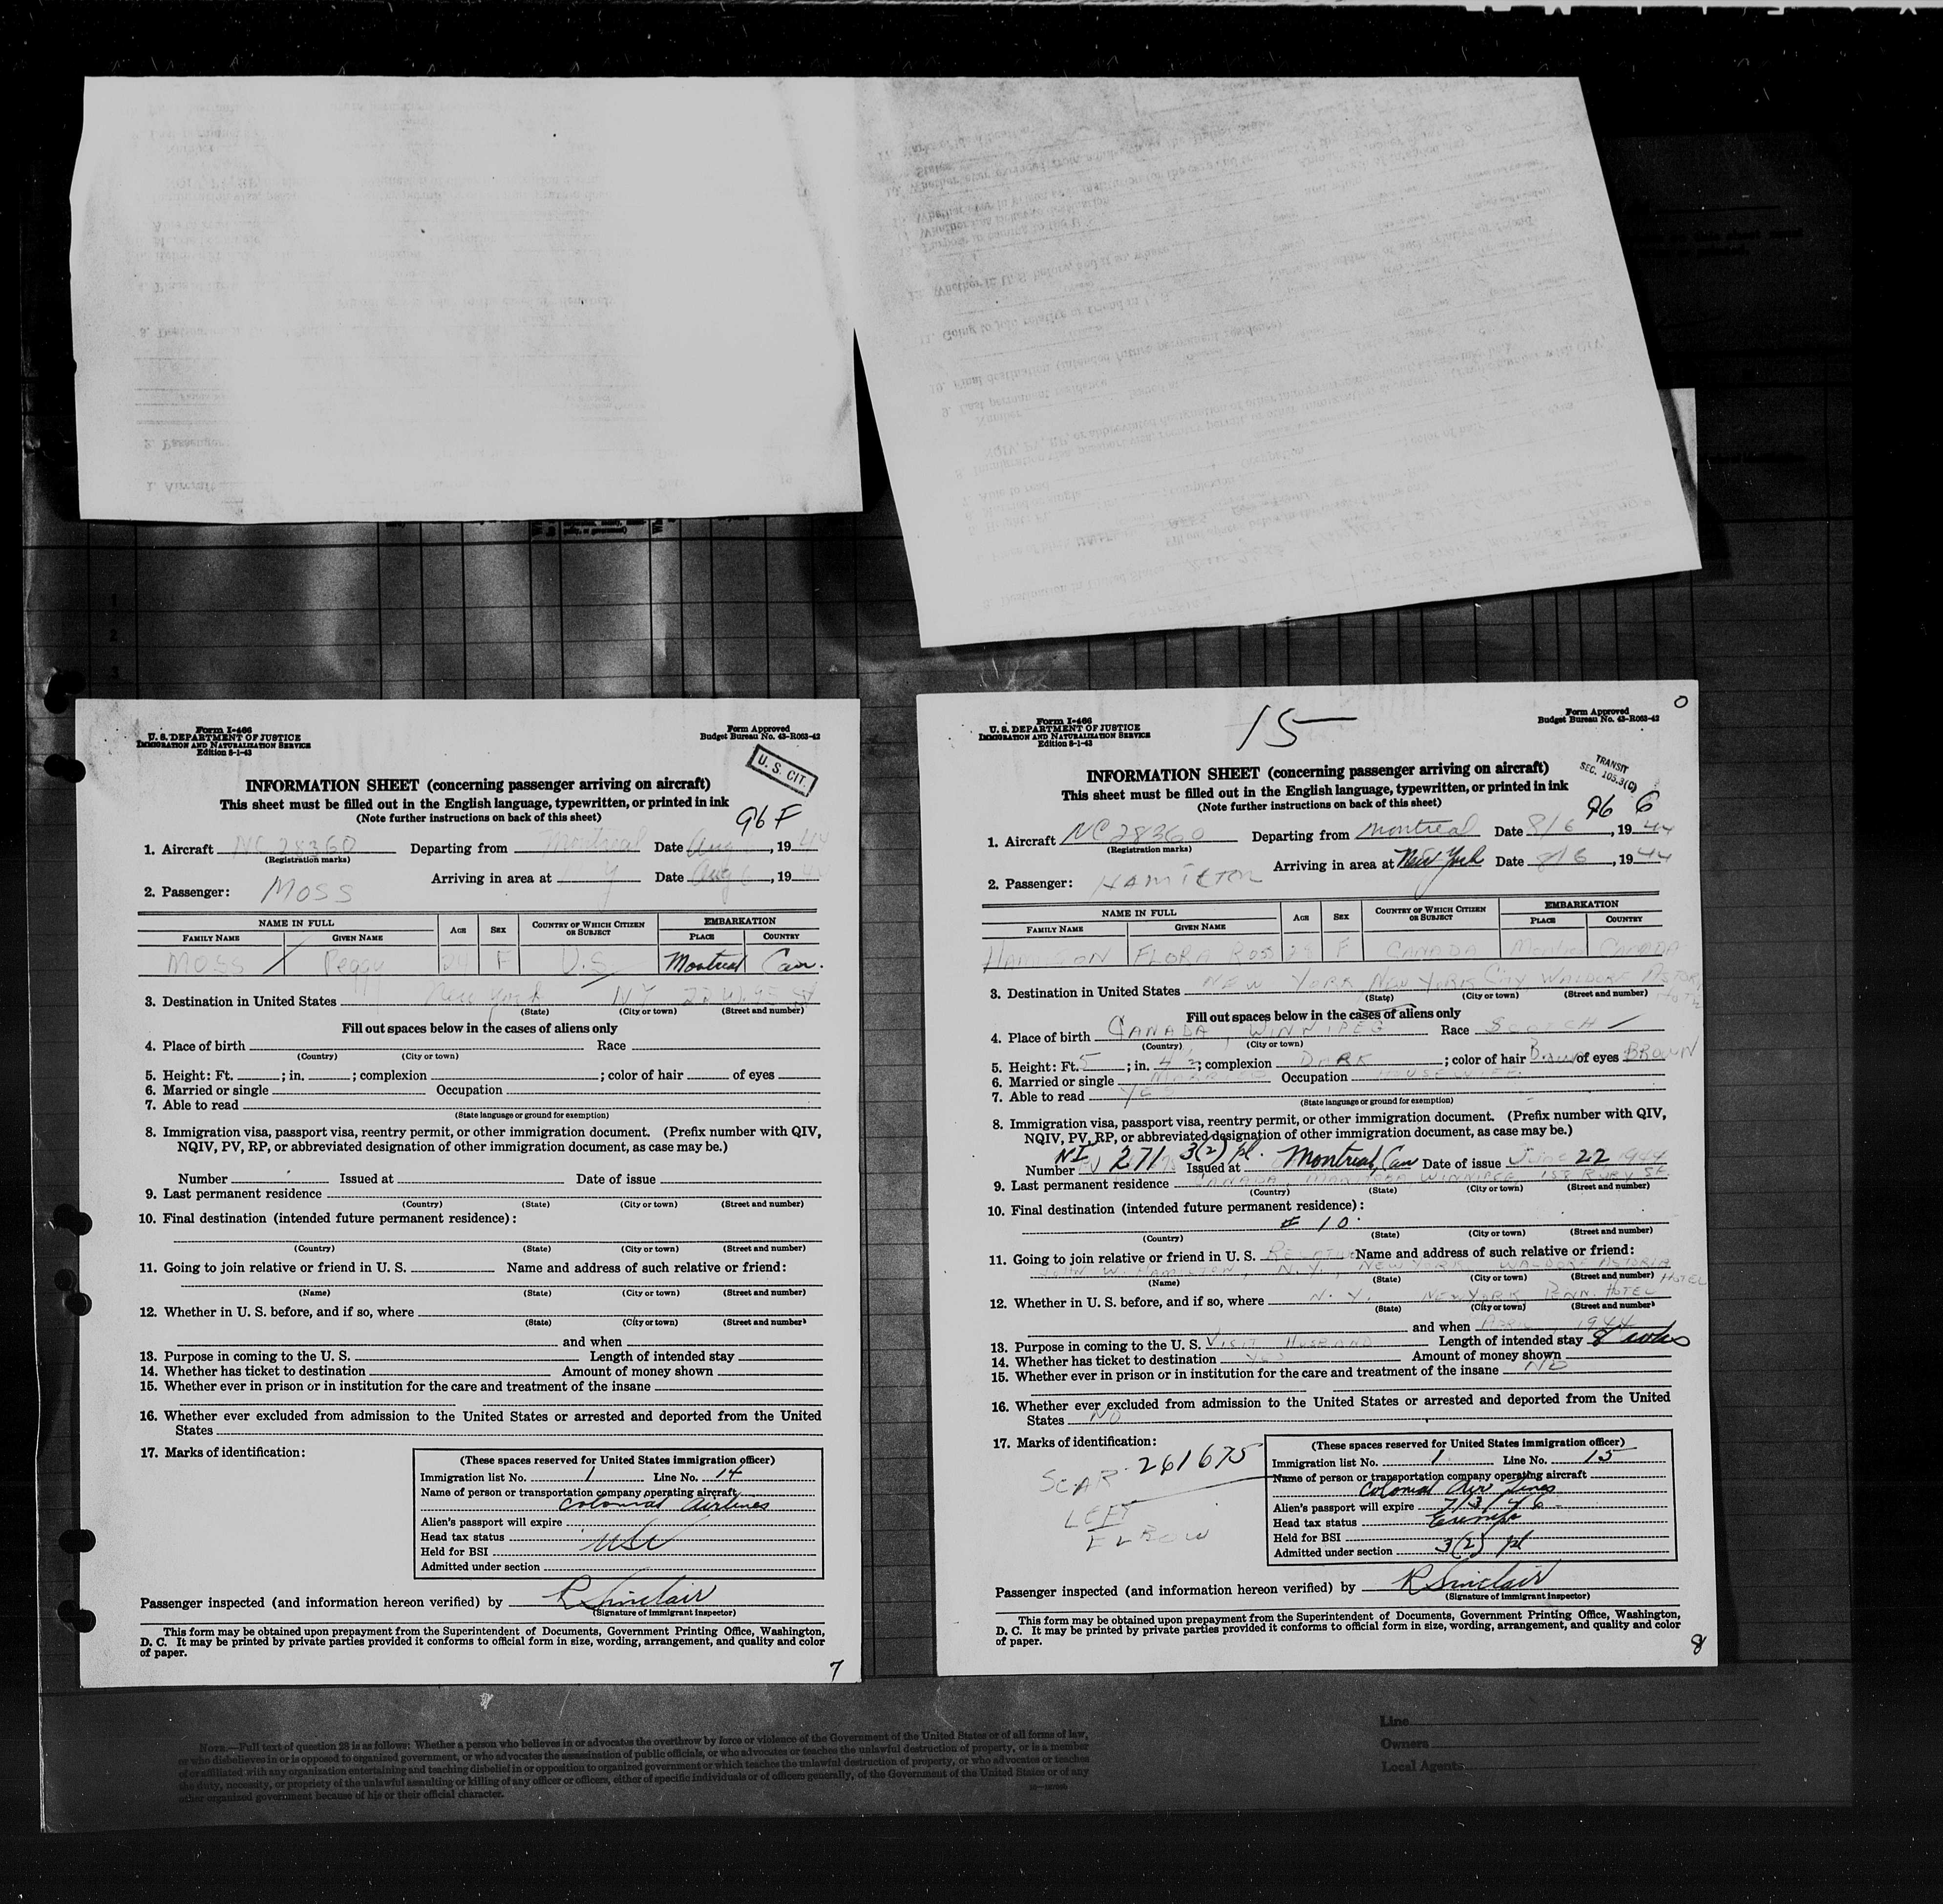 Form I-466
U. S. DEPARTMENT OF JUSTICE
IMMIGRATION AND NATURALIZATION SERVICE
Edition 8-1-43
Form Approved
Budget Bureau No. 43-R063-42
U. S. CIT.
INFORMATION SHEET (concerning passenger arriving on aircraft)
This sheet must be filled out in the English language, typewritten, or printed in ink
(Note further instructions on back of this sheet)
96 F
1. Aircraft NC 28360 Departing from Montreal Date Aug , 19 44
(Registration marks)
Arriving in area at Date Aug 6 , 19
2. Passenger: MOSS
NAME IN FULL AGE SEX COUNTRY OF WHICH CITIZEN OR SUBJECT EMBARKATION
FAMILY NAME GIVEN NAME PLACE COUNTRY
MOSS Peggy 24 F U.S Montreal Can.
3. Destination in United States New York NY 22 W.
(State) (City or town) (Street and number)
Fill out spaces below in the cases of aliens only
4. Place of birth Race
(Country) (City or town)
5. Height: Ft. ; in. ; complexion ; color of hair of eyes
6. Married or single Occupation
7. Able to read
(State language or ground for exemption)
8. Immigration visa, passport visa, reentry permit, or other immigration document. (Prefix number with QIV,
NQIV, PV, RP, or abbreviated designation of other immigration document, as case may be.)
Number Issued at Date of issue
9. Last permanent residence
(Country) (State) (City or town) (Street and number)
10. Final destination (intended future permanent residence):
(Country) (State) (City or town) (Street and number)
11. Going to join relative or friend in U. S. Name and address of such relative or friend:
(Name) (State) (City or town) (Street and number)
12. Whether in U. S. before, and if so, where
(State) (City or town) (Street and number)
and when
13. Purpose in coming to the U. S. Length of intended stay
14. Whether has ticket to destination Amount of money shown
15. Whether ever in prison or in institution for the care and treatment of the insane
16. Whether ever excluded from admission to the United States or arrested and deported from the United
States
17. Marks of identification:
(These spaces reserved for United States immigration officer)
Immigration list No. 1 Line No. 14
Name of person or transportation company operating aircraft
Colonial Airlines
Alien's passport will expire
Head tax status USC
Held for BSI
Admitted under section
Passenger inspected (and information hereon verified) by R Sinclair
(Signature of immigrant inspector)
This form may be obtained upon prepayment from the Superintendent of Documents, Government Printing Office, Washington,
D. C. It may be printed by private parties provided it conforms to official form in size, wording, arrangement, and quality and color
of paper.
7
Form I-466
U. S. DEPARTMENT OF JUSTICE
IMMIGRATION AND NATURALIZATION SERVICE
Edition 8-1-43
15
Form Approved
Budget Bureau No. 43-R063-42
TRANSIT
SEC. 105.3(C)
INFORMATION SHEET (concerning passenger arriving on aircraft)
This sheet must be filled out in the English language, typewritten, or printed in ink
(Note further instructions on back of this sheet)
96 G
1. Aircraft NC28360 Departing from Montreal Date 8/6 , 19 44
(Registration marks)
Arriving in area at New York Date 8/6 , 19 44
2. Passenger: HAMILTON
NAME IN FULL AGE SEX COUNTRY OF WHICH CITIZEN OR SUBJECT EMBARKATION
FAMILY NAME GIVEN NAME PLACE COUNTRY
HAMILTON FLORA ROSS 28 F CANADA Montreal CANADA
3. Destination in United States NEW YORK, NEW YORK CITY WALDORF ASTORIA
HOTEL
(State) (City or town) (Street and number)
Fill out spaces below in the cases of aliens only
4. Place of birth CANADA, WINNIPEG Race SCOTCH
(Country) (City or town)
5. Height: Ft. 5 ; in. 4 ; complexion DARK ; color of hair Brown of eyes BROWN
6. Married or single MARRIED Occupation HOUSEWIFE
7. Able to read YES
(State language or ground for exemption)
8. Immigration visa, passport visa, reentry permit, or other immigration document. (Prefix number with QIV,
NQIV, PV, RP, or abbreviated designation of other immigration document, as case may be.)
NI 3(2) pl.
Number 271 Issued at Montreal, Can Date of issue June 22 1944
9. Last permanent residence CANADA, MANITOBA WINNIPEG, RUBY ST.
(Country) (State) (City or town) (Street and number)
10. Final destination (intended future permanent residence):
# 10.
(Country) (State) (City or town) (Street and number)
11. Going to join relative or friend in U. S. RELATIVE Name and address of such relative or friend:
JOHN W. HAMILTON, N.Y., NEW YORK WALDORF ASTORIA HOTEL
(Name) (State) (City or town) (Street and number)
12. Whether in U. S. before, and if so, where N. Y. NEW YORK PENN. HOTEL
(State) (City or town) (Street and number)
and when APRIL, 1944
13. Purpose in coming to the U. S. VISIT HUSBAND Length of intended stay 8 wks
14. Whether has ticket to destination YES Amount of money shown
15. Whether ever in prison or in institution for the care and treatment of the insane NO
16. Whether ever excluded from admission to the United States or arrested and deported from the United
States NO
17. Marks of identification:
261675
SCAR
LEFT
ELBOW
(These spaces reserved for United States immigration officer)
Immigration list No. 1 Line No. 15
Name of person or transportation company operating aircraft
Colonial Air Lines
Alien's passport will expire 7/3/46
Head tax status Exempt
Held for BSI
Admitted under section 3(2) pl
Passenger inspected (and information hereon verified) by R Sinclair
(Signature of immigrant inspector)
This form may be obtained upon prepayment from the Superintendent of Documents, Government Printing Office, Washington,
D. C. It may be printed by private parties provided it conforms to official form in size, wording, arrangement, and quality and color
of paper.
8
NOTE.—Full text of question 28 is as follows: Whether a person who believes in or advocates the overthrow by force or violence of the Government of the United States or of all forms of law,
or who disbelieves in or is opposed to organized government, or who advocates the assassination of public officials, or who advocates or teaches the unlawful destruction of property, or is a member
of or affiliated with any organization entertaining and teaching disbelief in or opposition to organized government or which teaches the unlawful destruction of property, or who advocates or teaches
the duty, necessity, or propriety of the unlawful assaulting or killing of any officer or officers, either of specific individuals or of officers generally, of the Government of the United States or of any
other organized government because of his or their official character.
Line
Owners
Local Agents